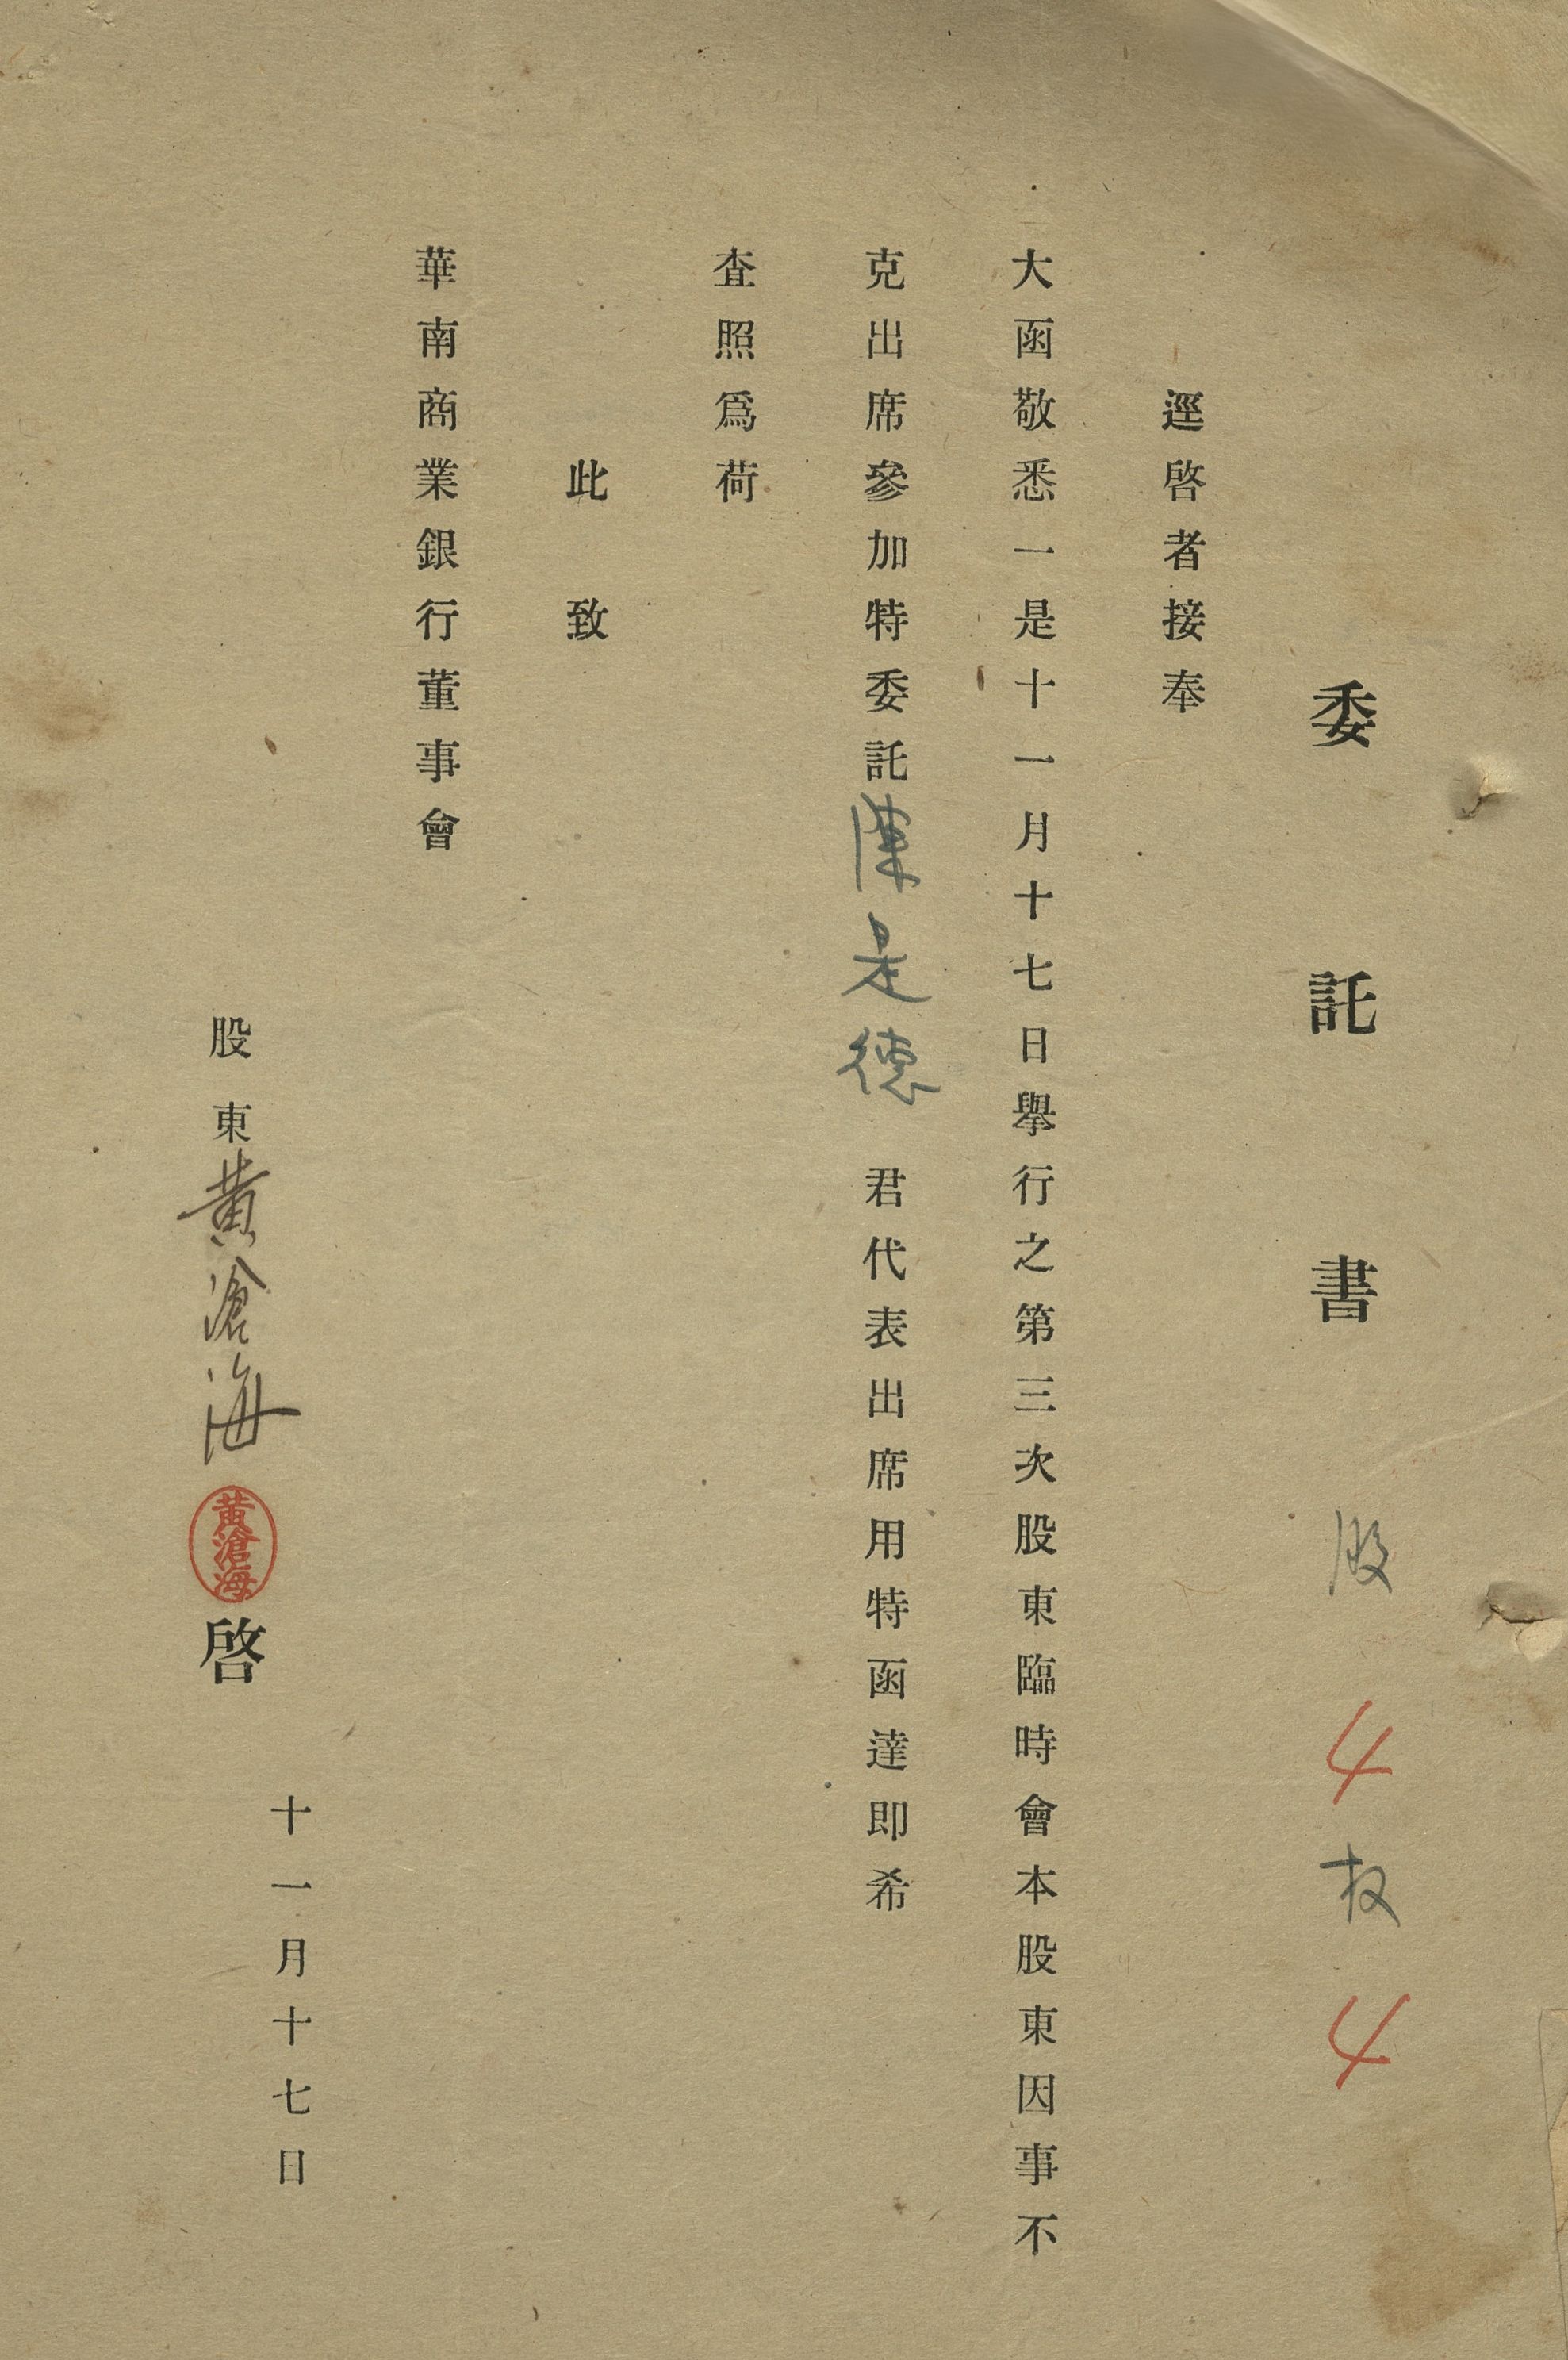 委託書 股 4 权 4
逕啓者接奉
大函敬悉一是十一月十七日舉行之第三次股東臨時會本股東因事不
克出席參加特委託陳是德君代表出席用特函達即希
查照爲荷
此致
華南商業銀行董事會
股東黃滄海 黃滄海 啓
十一月十七日